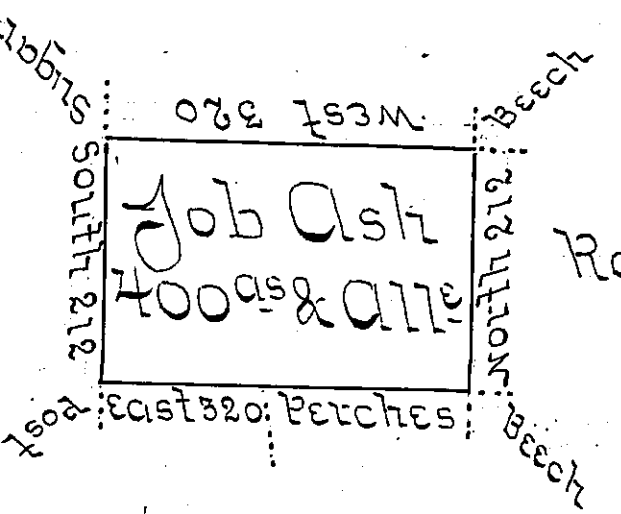 Sugar
West 320
Beech
South 212
Job Ash
400 as & alle
North 212
Post
East 320 Perches
Beech